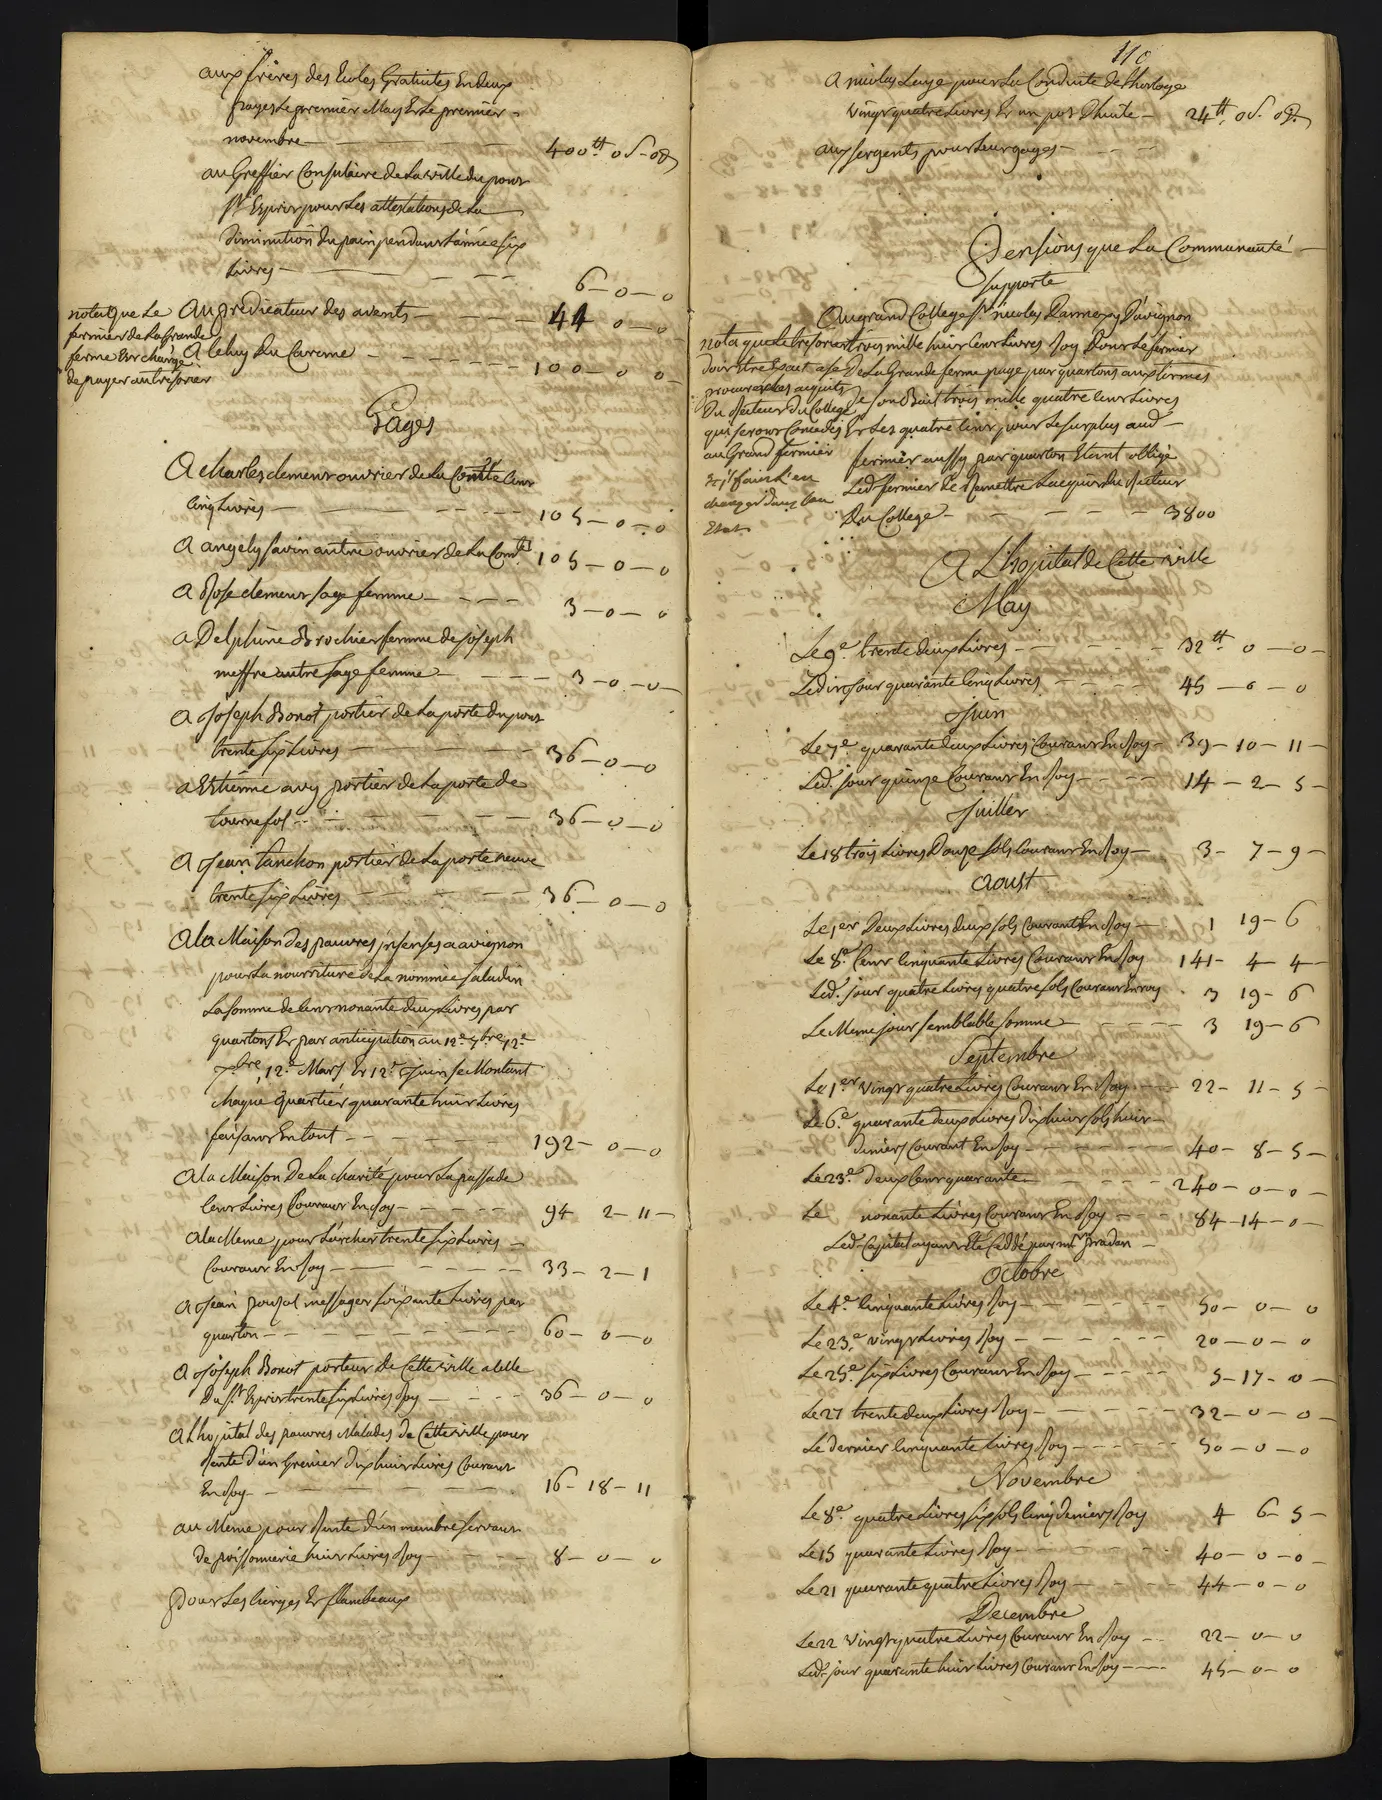 aux frères des Ecoles Gratuites En deux
payes Le premier May Et Le premier
novembre 400tt. 0s. 0d
au Greffier Consulaire de La ville du pont
St Esprit pour Les attestations de La
Diminution du pain pendant L'année six
Livres 6-0-0
Au predicateur des avents 44 0-0
A Celuy Du Careme 100-0 0
nota que Le
fermier de La grande
ferme Est chargé
de payer au tresorier
Gages
A charles clement ouvrier de La Comté Cent
Cinq Livres 105-0-0
A angely savin autre ouvrier de La Comté 105-0-0
A Rose clement sage femme 3-0-0
a Delphine Brochier femme de joseph
meffre autre sage femme 3-0-0
a Joseph Bonot portier de La porte du pont
trente six Livres 36-0-0
a Etienne avy portier de La porte de
tournefol 36-0-0
a jean fanchon portier de La porte neuve
trente six Livres 36-0-0
A la Maison des pauvres insensés a avignon
pour La nourriture de La nommée saladin
La somme de Cent nonante deux Livres par
quartons Et par anticipation au 12e xbre, 12e
7bre, 12e Mars Et 12e Juin se Montant
chaque Quartier quarante huit Livres
faisant En tout 192-0-0
a la Maison De La charité pour La passade
Cent Livres Courant En Roy 94 2-11
a la Meme pour L'archer trente six Livres
Courant En Roy 33-2-1
a jean pouzol messager soixante Livres par
quarton 60-0-0
A joseph Bonot porteur de Cette ville a Celle
Du St Esprit trente six Livres Roy 36-0-0
a L'hopital des pauvres Malades de Cette ville pour
Rente d'un Grenier dix huit Livres Courant
En Roy 16-18-11
au Meme pour Rente d'un membre servant
de poissonnerie huit Livres Roy 8-0-0
pour Les cierges Et flambeaux
110
A nicolas Laye pour La Conduite de L'horloge
vingt quatre Livres Et un pot D'huile 24tt. 0s. 0d.
aux sergents pour Leur gages
Pensions que La Communauté
supporte
Au grand College St nicolas Dannecy D'avignon
trois mille huit Cent Livres Roy Dont Le fermier
De La Grande ferme paye par quartons aux termes
de son Bail trois mille quatre Cent Livres
Et Les quatre Cent pour Le surplus aud
fermier aussy par quarton Etant obligé
Led. fermier de Remettre L'acquit du Recteur
Du College 3800
nota que Le tresorier
doit etre Exact a se
procurer Les acquits
Du Recteur Du College
qui seront Concedés
au Grand fermier
Et s'il faisait en
changer dans Leur
Etat
A L'hopital de Cette ville
May
Le 9e. trente deux Livres 32tt. 0-0
Ledit jour quarante Cinq Livres 45-0-0
Juin
Le 7e. quarante deux Livres Courant En Roy 39-10-11
Led. jour quinze Courant En Roy 14-2-5
Juillet
Le 18 trois Livres Douze sols Courant En Roy 3-7-9
Aoust
Le 1er Deux Livres deux sols Courant En Roy 1 19-6
Le 8e. Cent Cinquante Livres Courant En Roy 141-4-4
Led. jour quatre Livres quatre sols Courant En roy 3 19-6
Le Meme jour semblable somme 3 19-6
Septembre
Le 1er vingt quatre Livres Courant En Roy 22-11-5
Le 6e. quarante deux Livres dix huit sols huit
deniers Courant En Roy 40-8-5
Le 23e. deux Cent quarante 240-0-0
Le nonante Livres Courant En Roy 84-14-0
Led. Capital ayant Eté Cedé par mr pradan
Octobre
Le 4e. Cinquante Livres Roy 50-0-0
Le 23e. vingt Livres Roy 20-0-0
Le 25e. six Livres Courant En Roy 5-17-0
Le 27 trente deux Livres Roy 32-0-0
Le dernier Cinquante Livres Roy 50-0-0
Novembre
Le 8e quatre Livres six sols Cinq deniers Roy 4 6-5
Le 15 quarante Livres Roy 40-0-0
Le 21 quarante quatre Livres Roy 44-0-0
Decembre
Le 22 vingt quatre Livres Courant En Roy 22-0-0
Led. jour quarante huit Livres Courant En Roy 45-0-0